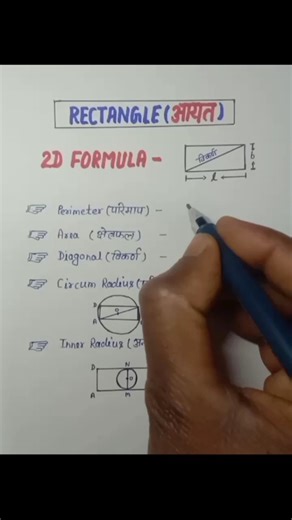 RECTANGLE (आयत)
2D FORMULA -
विकर्ण
b
l
Perimeter (परिमाप) -
Area (क्षेत्रफल) -
Diagonal (विकर्ण) -
Circum Radius (
D
A
Inner Radius (
D N
A M